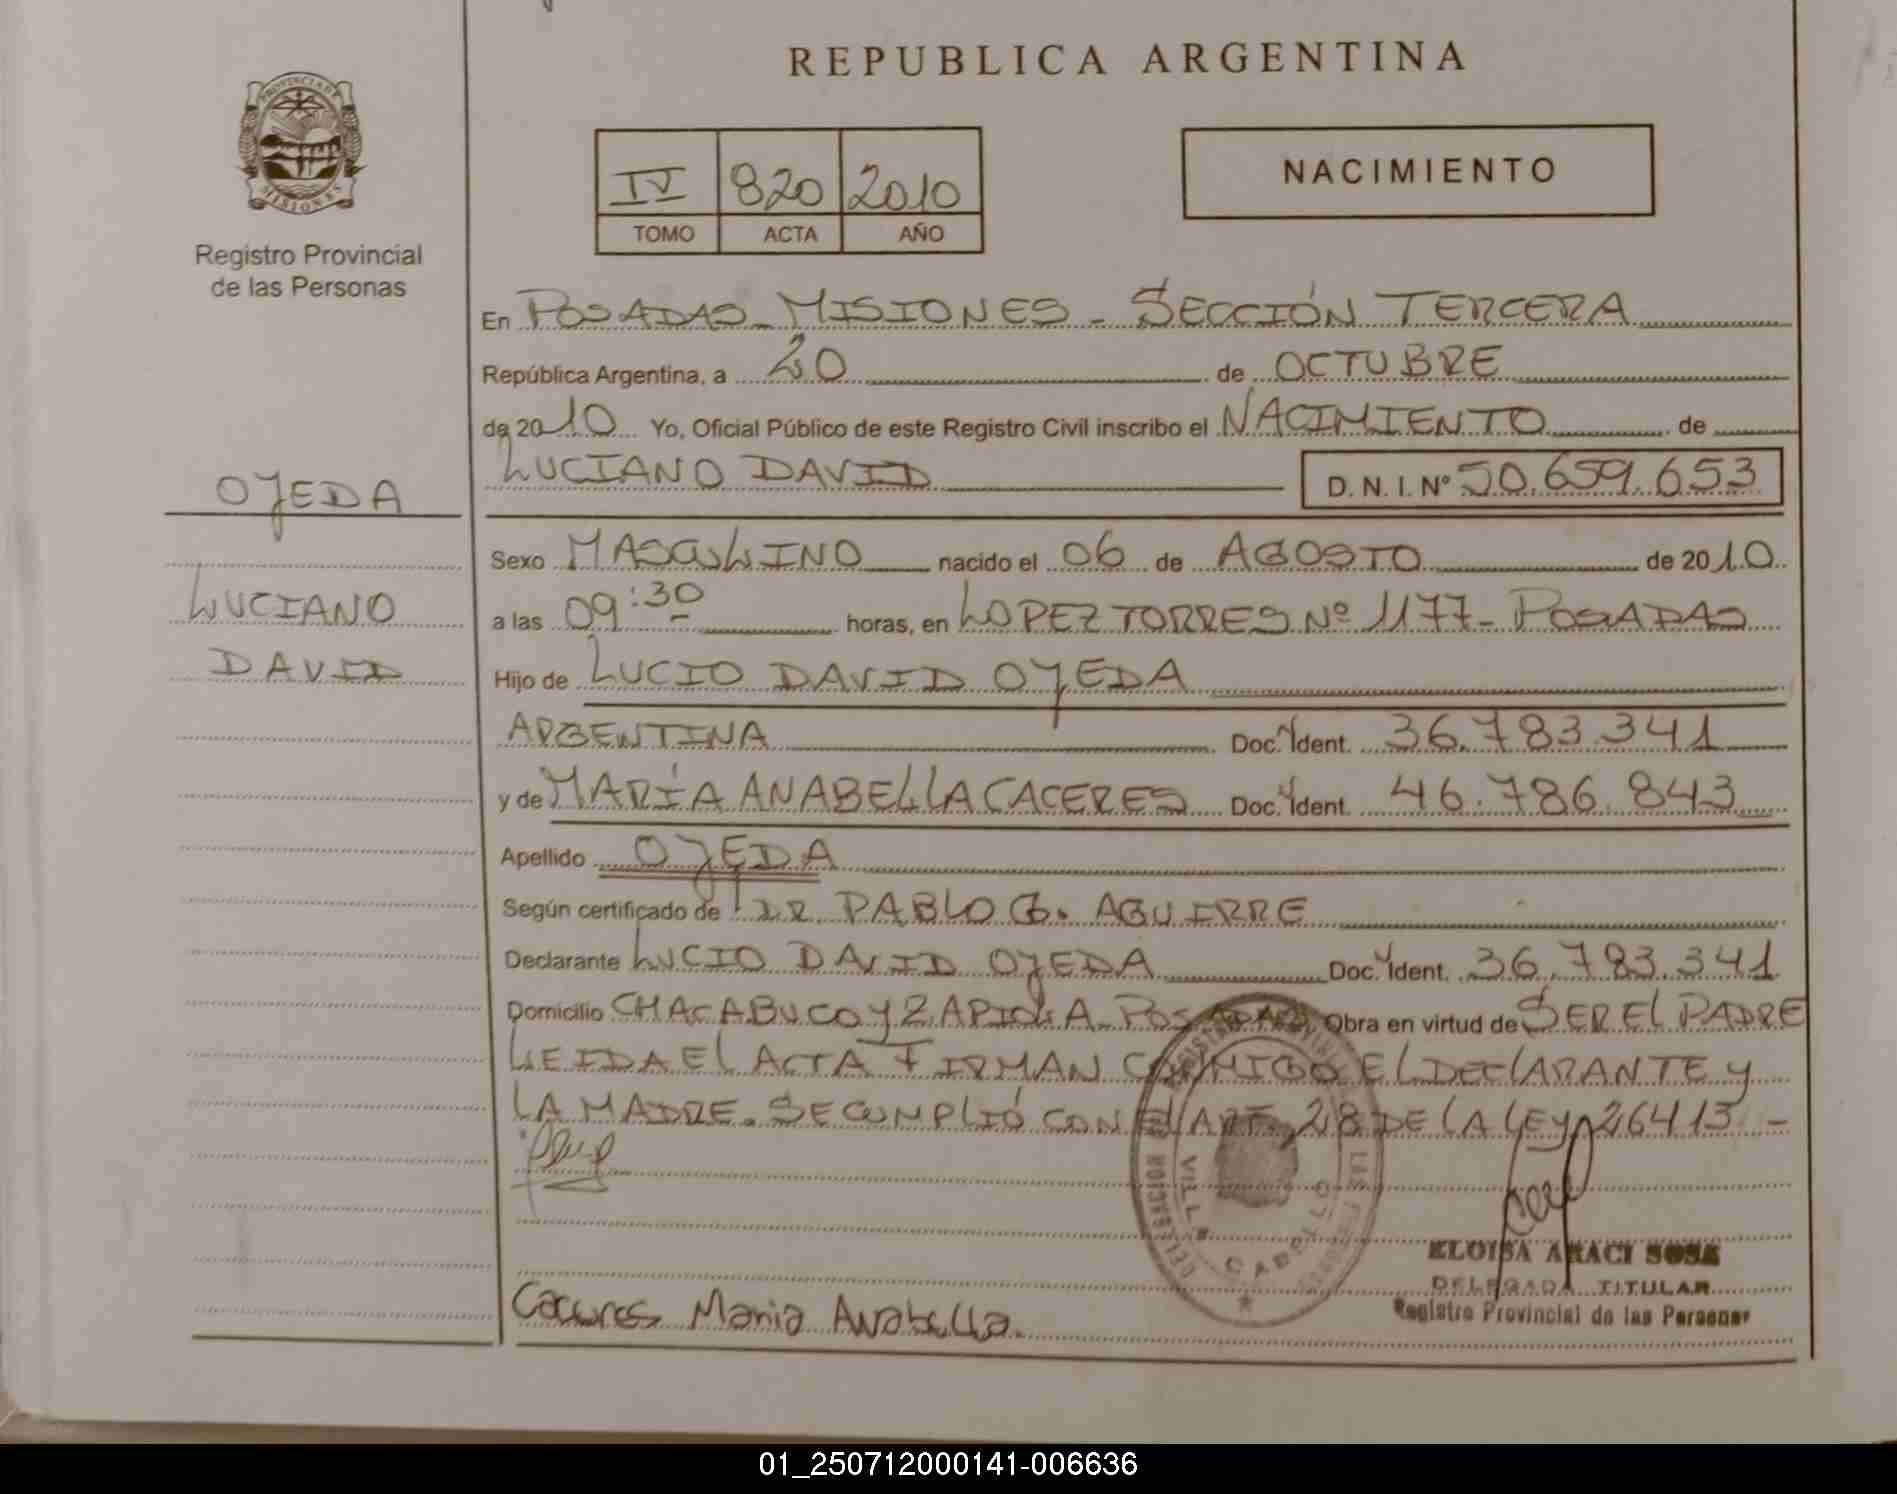 REPUBLICA ARGENTINA
PROVINCIA DE
MISIONES
Registro Provincial
de las Personas
IV 820 2010
TOMO ACTA AÑO
NACIMIENTO
En POSADAS - MISIONES - SECCIÓN TERCERA
República Argentina, a 20 de OCTUBRE
de 2010 Yo, Oficial Público de este Registro Civil inscribo el NACIMIENTO de
LUCIANO DAVID D. N. I. Nº 50.659.653
OJEDA
LUCIANO
DAVID
Sexo MASCULINO nacido el 06 de AGOSTO de 2010
a las 09:30 horas, en LOPEZ TORRES Nº 1177 - POSADAS
Hijo de LUCIO DAVID OJEDA
ARGENTINA Doc. Ident. 36.783.341
y de MARÍA ANABELLA CACERES Doc. Ident. 46.786.843
Apellido OJEDA
Según certificado de DR. PABLO G. AGUIRRE
Declarante LUCIO DAVID OJEDA Doc. Ident. 36.783.341
Domicilio CHACABUCO Y ZAPIOLA - POSADAS Obra en virtud de SER EL PADRE
LEIDA EL ACTA FIRMAN CONMIGO EL DECLARANTE Y
LA MADRE. SE CUMPLIÓ CON EL ART. 28 DE LA LEY 26413 -
VILLA CABELLO
ELOISA ARACI SOSA
DELEGADA TITULAR
Registro Provincial de las Personas
Caceres Maria Anabella.
01_250712000141-006636